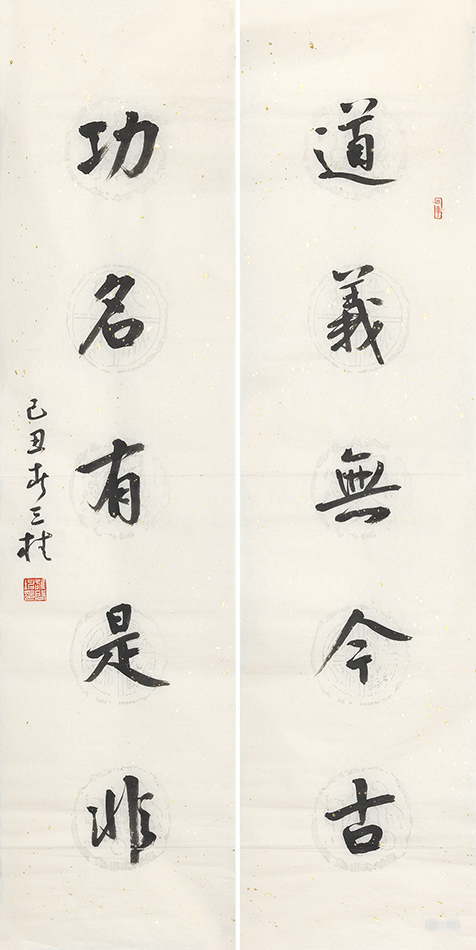 道義無今古
功名有是非
己丑春三桂